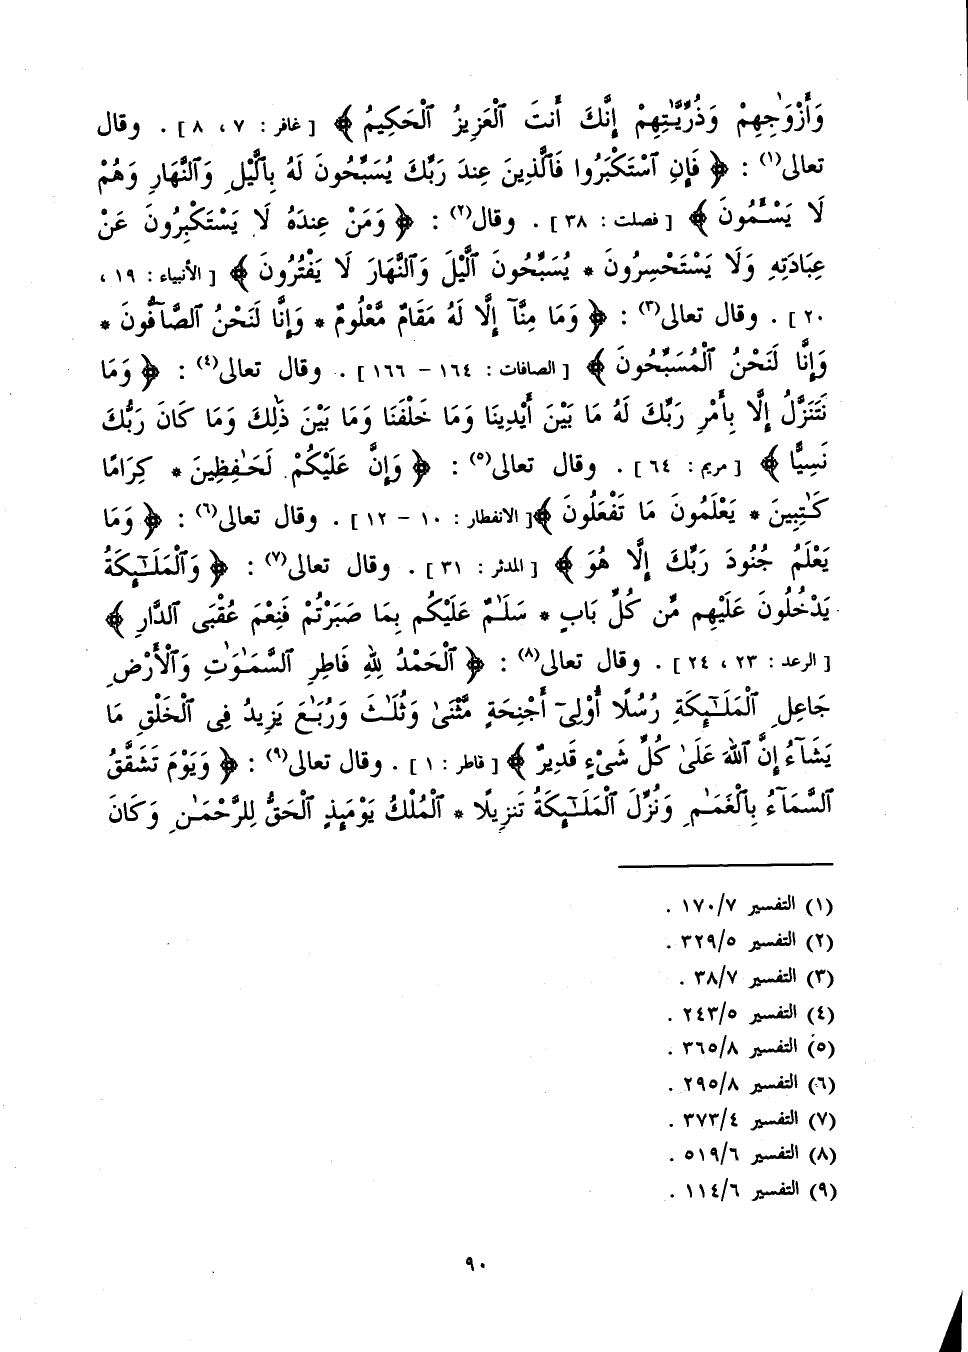 وَأَزْوَٰجِهِمْ وَذُرِّيَّـٰتِهِمْ إِنَّكَ أَنتَ ٱلْعَزِيزُ ٱلْحَكِيمُ ﴾ [ غافر : ٧ ، ٨ ] . وقال
تعالى(١) : ﴿ فَإِنِ ٱسْتَكْبَرُوا فَٱلَّذِينَ عِندَ رَبِّكَ يُسَبِّحُونَ لَهُ بِٱلَّيْلِ وَٱلنَّهَارِ وَهُمْ
لَا يَسْـَٔمُونَ ﴾ [ فصلت : ٣٨ ] . وقال(٢) : ﴿ وَمَنْ عِندَهُ لَا يَسْتَكْبِرُونَ عَنْ
عِبَادَتِهِ وَلَا يَسْتَحْسِرُونَ * يُسَبِّحُونَ ٱلَّيْلَ وَٱلنَّهَارَ لَا يَفْتُرُونَ ﴾ [ الأنبياء : ١٩ ،
٢٠ ] . وقال تعالى(٣) : ﴿ وَمَا مِنَّآ إِلَّا لَهُ مَقَامٌ مَّعْلُومٌ * وَإِنَّا لَنَحْنُ ٱلصَّآفُّونَ *
وَإِنَّا لَنَحْنُ ٱلْمُسَبِّحُونَ ﴾ [ الصافات : ١٦٤ – ١٦٦ ] . وقال تعالى(٤) : ﴿ وَمَا
نَتَنَزَّلُ إِلَّا بِأَمْرِ رَبِّكَ لَهُ مَا بَيْنَ أَيْدِينَا وَمَا خَلْفَنَا وَمَا بَيْنَ ذَٰلِكَ وَمَا كَانَ رَبُّكَ
نَسِيًّا ﴾ [ مريم : ٦٤ ] . وقال تعالى(٥) : ﴿ وَإِنَّ عَلَيْكُمْ لَحَـٰفِظِينَ * كِرَامًا
كَـٰتِبِينَ * يَعْلَمُونَ مَا تَفْعَلُونَ ﴾[ الانفطار : ١٠ – ١٢ ] . وقال تعالى(٦) : ﴿ وَمَا
يَعْلَمُ جُنُودَ رَبِّكَ إِلَّا هُوَ ﴾ [ المدثر : ٣١ ] . وقال تعالى(٧) : ﴿ وَٱلْمَلَـٰٓئِكَةُ
يَدْخُلُونَ عَلَيْهِم مِّن كُلِّ بَابٍ * سَلَـٰمٌ عَلَيْكُم بِمَا صَبَرْتُمْ فَنِعْمَ عُقْبَى ٱلدَّارِ ﴾
[ الرعد : ٢٣ ، ٢٤ ] . وقال تعالى(٨) : ﴿ ٱلْحَمْدُ لِلَّهِ فَاطِرِ ٱلسَّمَـٰوَٰتِ وَٱلْأَرْضِ
جَاعِلِ ٱلْمَلَـٰٓئِكَةِ رُسُلًا أُوْلِىٓ أَجْنِحَةٍ مَّثْنَىٰ وَثُلَـٰثَ وَرُبَـٰعَ يَزِيدُ فِى ٱلْخَلْقِ مَا
يَشَآءُ إِنَّ ٱللَّهَ عَلَىٰ كُلِّ شَىْءٍ قَدِيرٌ ﴾ [ فاطر : ١ ] . وقال تعالى(٩) : ﴿ وَيَوْمَ تَشَقَّقُ
ٱلسَّمَآءُ بِٱلْغَمَـٰمِ وَنُزِّلَ ٱلْمَلَـٰٓئِكَةُ تَنزِيلًا * ٱلْمُلْكُ يَوْمَئِذٍ ٱلْحَقُّ لِلرَّحْمَـٰنِ وَكَانَ
(١) التفسير ١٧٠/٧ .
(٢) التفسير ٣٢٩/٥ .
(٣) التفسير ٣٨/٧ .
(٤) التفسير ٢٤٣/٥ .
(٥) التفسير ٣٦٥/٨ .
(٦) التفسير ٢٩٥/٨ .
(٧) التفسير ٣٧٣/٤ .
(٨) التفسير ٥١٩/٦ .
(٩) التفسير ١١٤/٦ .
٩٠